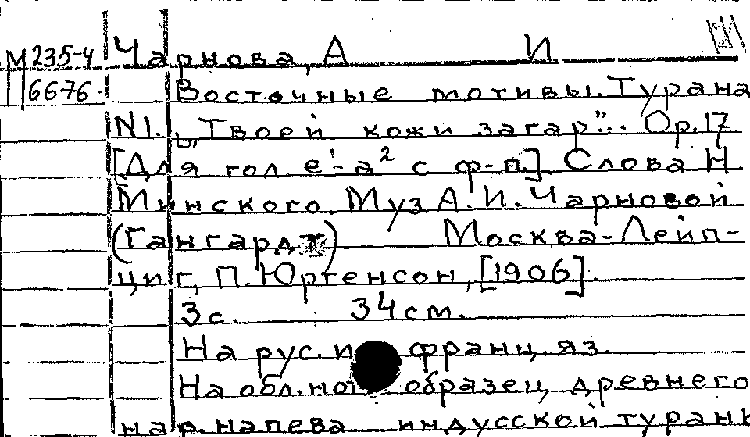 М 235-4 Чарнова, А И
6676 Восточные мотивы. Турана
N1. „Твоей кожи загар"... Ор.17
[Для гол. е¹-а² с ф-п.] Слова Н.
Минского. Муз А. И. Чарновой
(Гангардт) Москва-Лейп-
циг, П. Юргенсон, [1906].
3с. 34см.
На рус. и франц. яз.
На обл. нот: образец древнего
нар. напева индусской туранк